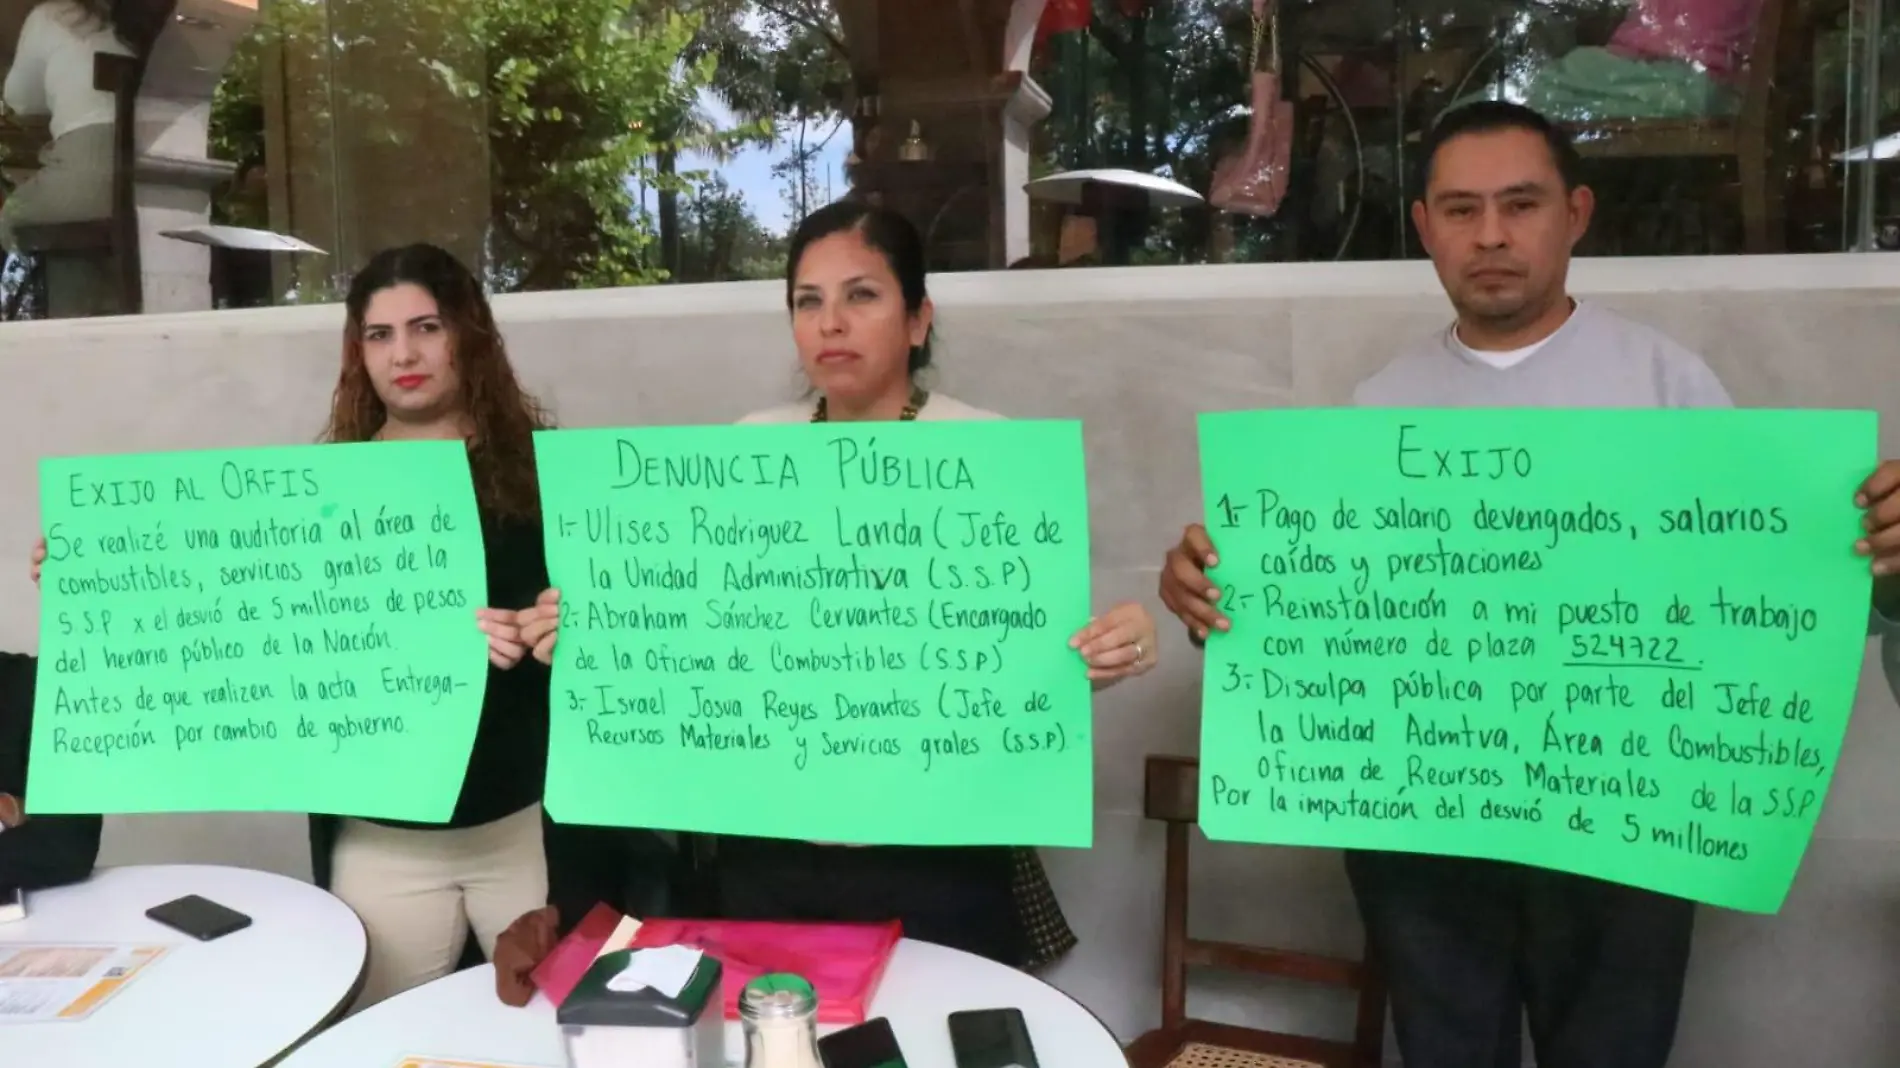 EXIJO AL ORFIS
Se realizé una auditoria al área de
combustibles, servicios grales de la
S.S.P x el desvió de 5 millones de pesos
del herario público de la Nación.
Antes de que realizen la acta Entrega-
Recepción por cambio de gobierno.
DENUNCIA PÚBLICA
1.- Ulises Rodriguez Landa (Jefe de
la Unidad Administrativa (S.S.P)
2.- Abraham Sánchez Cervantes (Encargado
de la Oficina de Combustibles (S.S.P)
3.- Israel Josua Reyes Dorantes (Jefe de
Recursos Materiales y Servicios grales (S.S.P).
EXIJO
1.- Pago de salario devengados, salarios
caídos y prestaciones
2.- Reinstalación a mi puesto de trabajo
con número de plaza 524722.
3.- Disculpa pública por parte del Jefe de
la Unidad Admtva, Área de Combustibles,
Oficina de Recursos Materiales de la S.S.P
Por la imputación del desvió de 5 millones